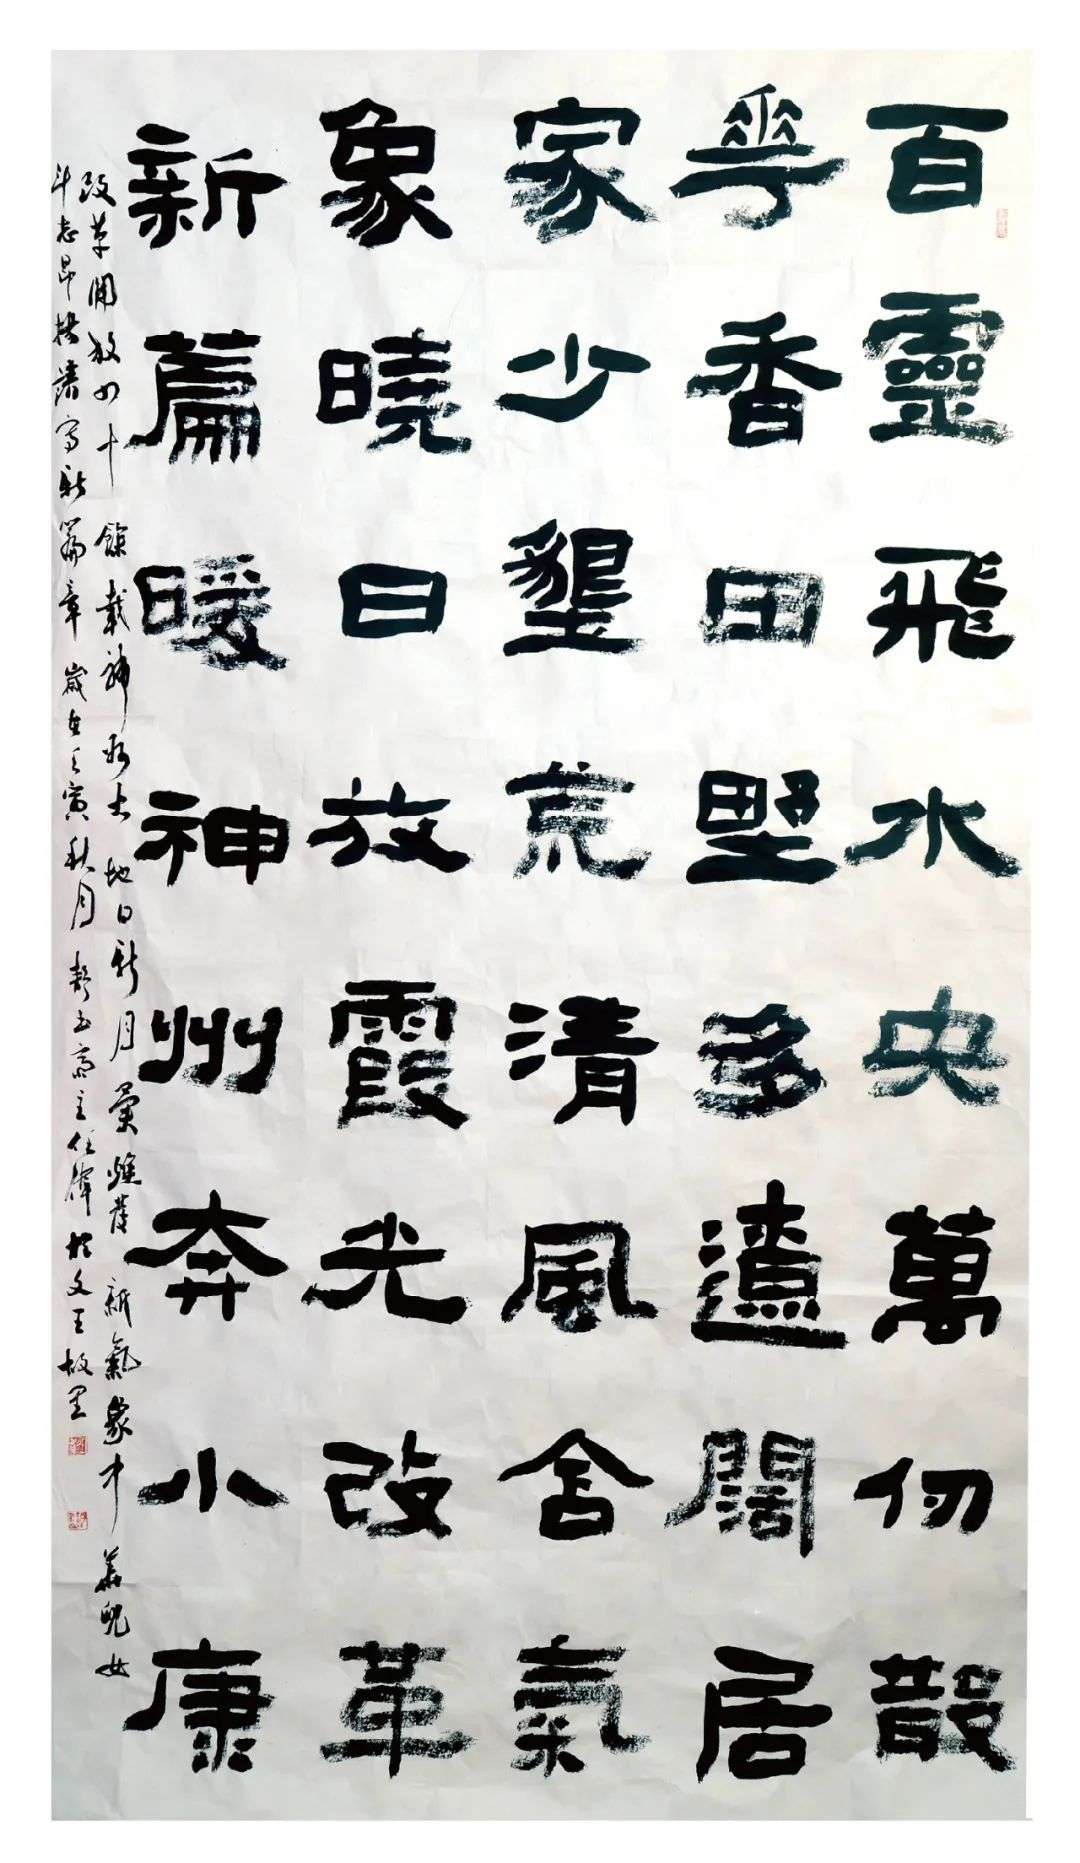 百靈飛水央萬仞散
華香田野多遺闊居
家少墾荒清風舍氣
象曉日放霞光改革
新篇暖神州奔小康
改革開放四十餘載神州大地日新月異煥發新氣象中華兒女
斗志昂揚譜寫新篇章歲在壬寅秋月 主任偉於文王故里